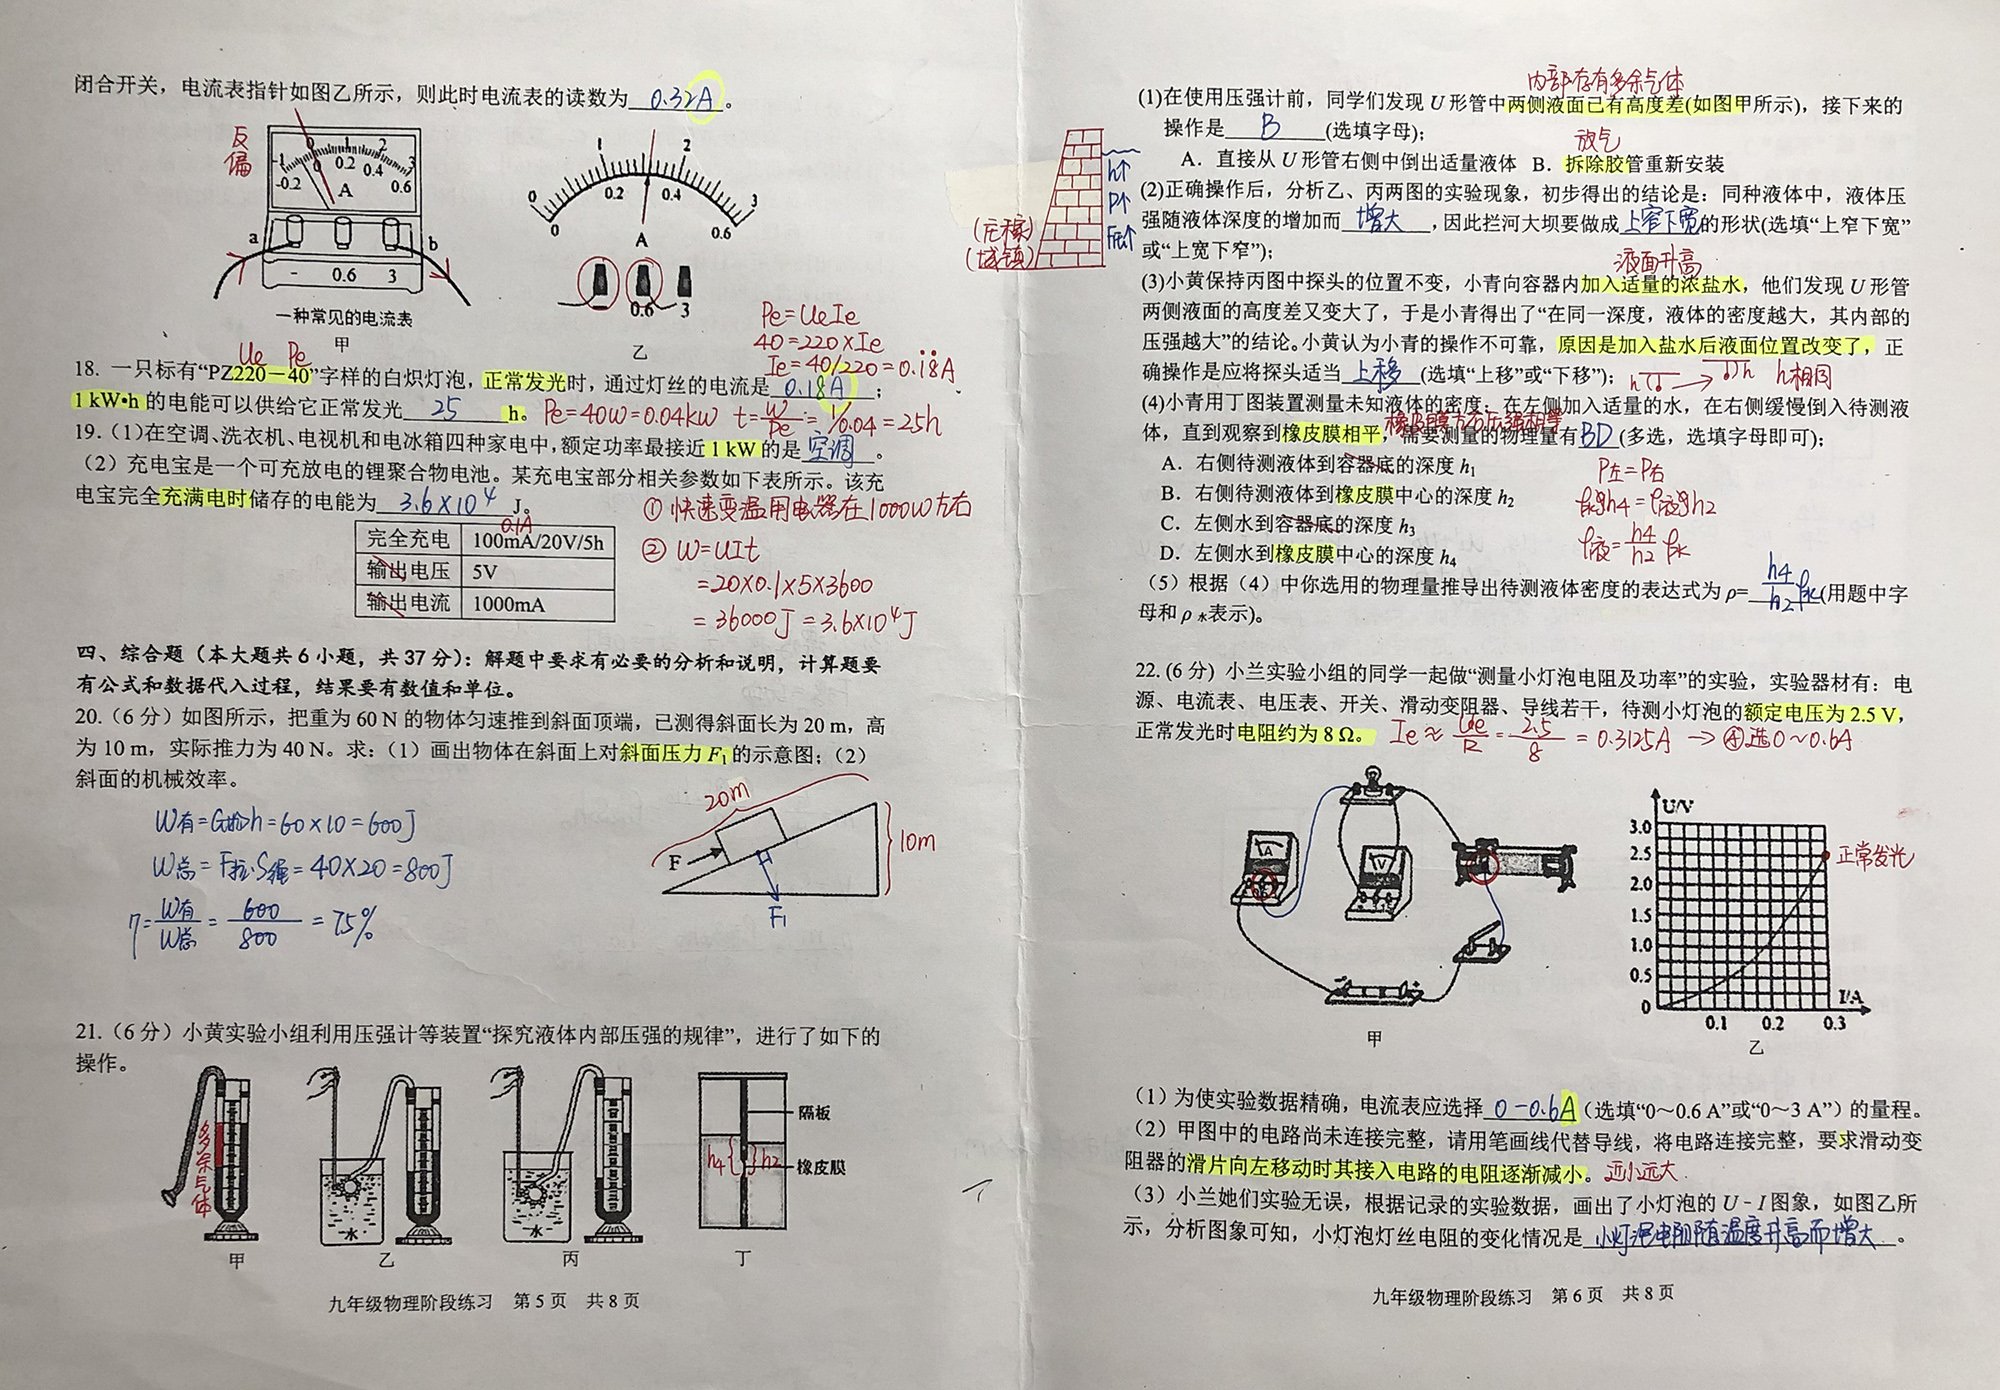 闭合开关，电流表指针如图乙所示，则此时电流表的读数为 0.32A 。
反偏
-1 0 1 2 3
-0.2 0 0.2 0.4 0.6
A
a b
- 0.6 3
一种常见的电流表
甲
0 1 2 3
0 0.2 0.4 0.6
A
- 0.6 3
乙
Pe=UeIe
40=220×Ie
Ie=40/220=0.1̇8̇A
Ue Pe
18. 一只标有“PZ220－40”字样的白炽灯泡，正常发光时，通过灯丝的电流是 0.18A ；
1 kW•h 的电能可以供给它正常发光 25 h。 Pe=40W=0.04kW t=W/Pe=1/0.04=25h
19.（1）在空调、洗衣机、电视机和电冰箱四种家电中，额定功率最接近 1 kW 的是 空调 。
（2）充电宝是一个可充放电的锂聚合物电池。某充电宝部分相关参数如下表所示。该充
电宝完全充满电时储存的电能为 3.6×10⁴ J。
① 快速变温用电器在1000W左右
0.1A
完全充电 100mA/20V/5h
输出电压 5V
输出电流 1000mA
② W=UIt
=20×0.1×5×3600
=36000J=3.6×10⁴J
四、综合题（本大题共 6 小题，共 37 分）：解题中要求有必要的分析和说明，计算题要
有公式和数据代入过程，结果要有数值和单位。
20.（6 分）如图所示，把重为 60 N 的物体匀速推到斜面顶端，已测得斜面长为 20 m，高
为 10 m，实际推力为 40 N。求：（1）画出物体在斜面上对斜面压力 F₁的示意图；（2）
斜面的机械效率。
W有=G物h=60×10=600J
W总=F拉·S绳=40×20=800J
η=W有/W总=600/800=75%
20m
10m
F
F₁
21.（6 分）小黄实验小组利用压强计等装置“探究液体内部压强的规律”，进行了如下的
操作。
多余气体
水
水
隔板
橡皮膜
h4 h2
甲 乙 丙 丁
九年级物理阶段练习 第 5 页 共 8 页
内部存有多余气体
(1)在使用压强计前，同学们发现 U 形管中两侧液面已有高度差(如图甲所示)，接下来的
操作是 B (选填字母)；
放气
A．直接从 U 形管右侧中倒出适量液体 B．拆除胶管重新安装
(2)正确操作后，分析乙、丙两图的实验现象，初步得出的结论是：同种液体中，液体压
强随液体深度的增加而 增大 ，因此拦河大坝要做成 上窄下宽 的形状(选填“上窄下宽”
或“上宽下窄”)；
h↑
P↑
F压↑
(庄稼)
(城镇)
液面升高
(3)小黄保持丙图中探头的位置不变，小青向容器内加入适量的浓盐水，他们发现 U 形管
两侧液面的高度差又变大了，于是小青得出了“在同一深度，液体的密度越大，其内部的
压强越大”的结论。小黄认为小青的操作不可靠，原因是加入盐水后液面位置改变了，正
确操作是应将探头适当 上移 (选填“上移”或“下移”)； h → h h相同
(4)小青用丁图装置测量未知液体的密度：在左侧加入适量的水，在右侧缓慢倒入待测液
橡皮膜左右压强相等
体，直到观察到橡皮膜相平，需要测量的物理量有 BD (多选，选填字母即可)；
A．右侧待测液体到容器底的深度 h₁
B．右侧待测液体到橡皮膜中心的深度 h₂
C．左侧水到容器底的深度 h₃
D．左侧水到橡皮膜中心的深度 h₄
P左=P右
ρ水gh4=ρ液gh2
ρ液=h4/h2 ρ水
（5）根据（4）中你选用的物理量推导出待测液体密度的表达式为 ρ= h4/h2 ρ水 (用题中字
母和 ρ 水表示)。
22. (6 分) 小兰实验小组的同学一起做“测量小灯泡电阻及功率”的实验，实验器材有：电
源、电流表、电压表、开关、滑动变阻器、导线若干，待测小灯泡的额定电压为 2.5 V，
正常发光时电阻约为 8 Ω。 Ie≈Ue/R=2.5/8=0.3125A → Ⓐ选0~0.6A
A
V
甲
U/V
3.0
2.5
2.0
1.5
1.0
0.5
0
0.1 0.2 0.3
I/A
正常发光
乙
（1）为使实验数据精确，电流表应选择 0-0.6A（选填“0～0.6 A”或“0～3 A”）的量程。
（2）甲图中的电路尚未连接完整，请用笔画线代替导线，将电路连接完整，要求滑动变
阻器的滑片向左移动时其接入电路的电阻逐渐减小。 近小远大
（3）小兰她们实验无误，根据记录的实验数据，画出了小灯泡的 U－I 图象，如图乙所
示，分析图象可知，小灯泡灯丝电阻的变化情况是 小灯泡电阻随温度升高而增大 。
九年级物理阶段练习 第 6 页 共 8 页